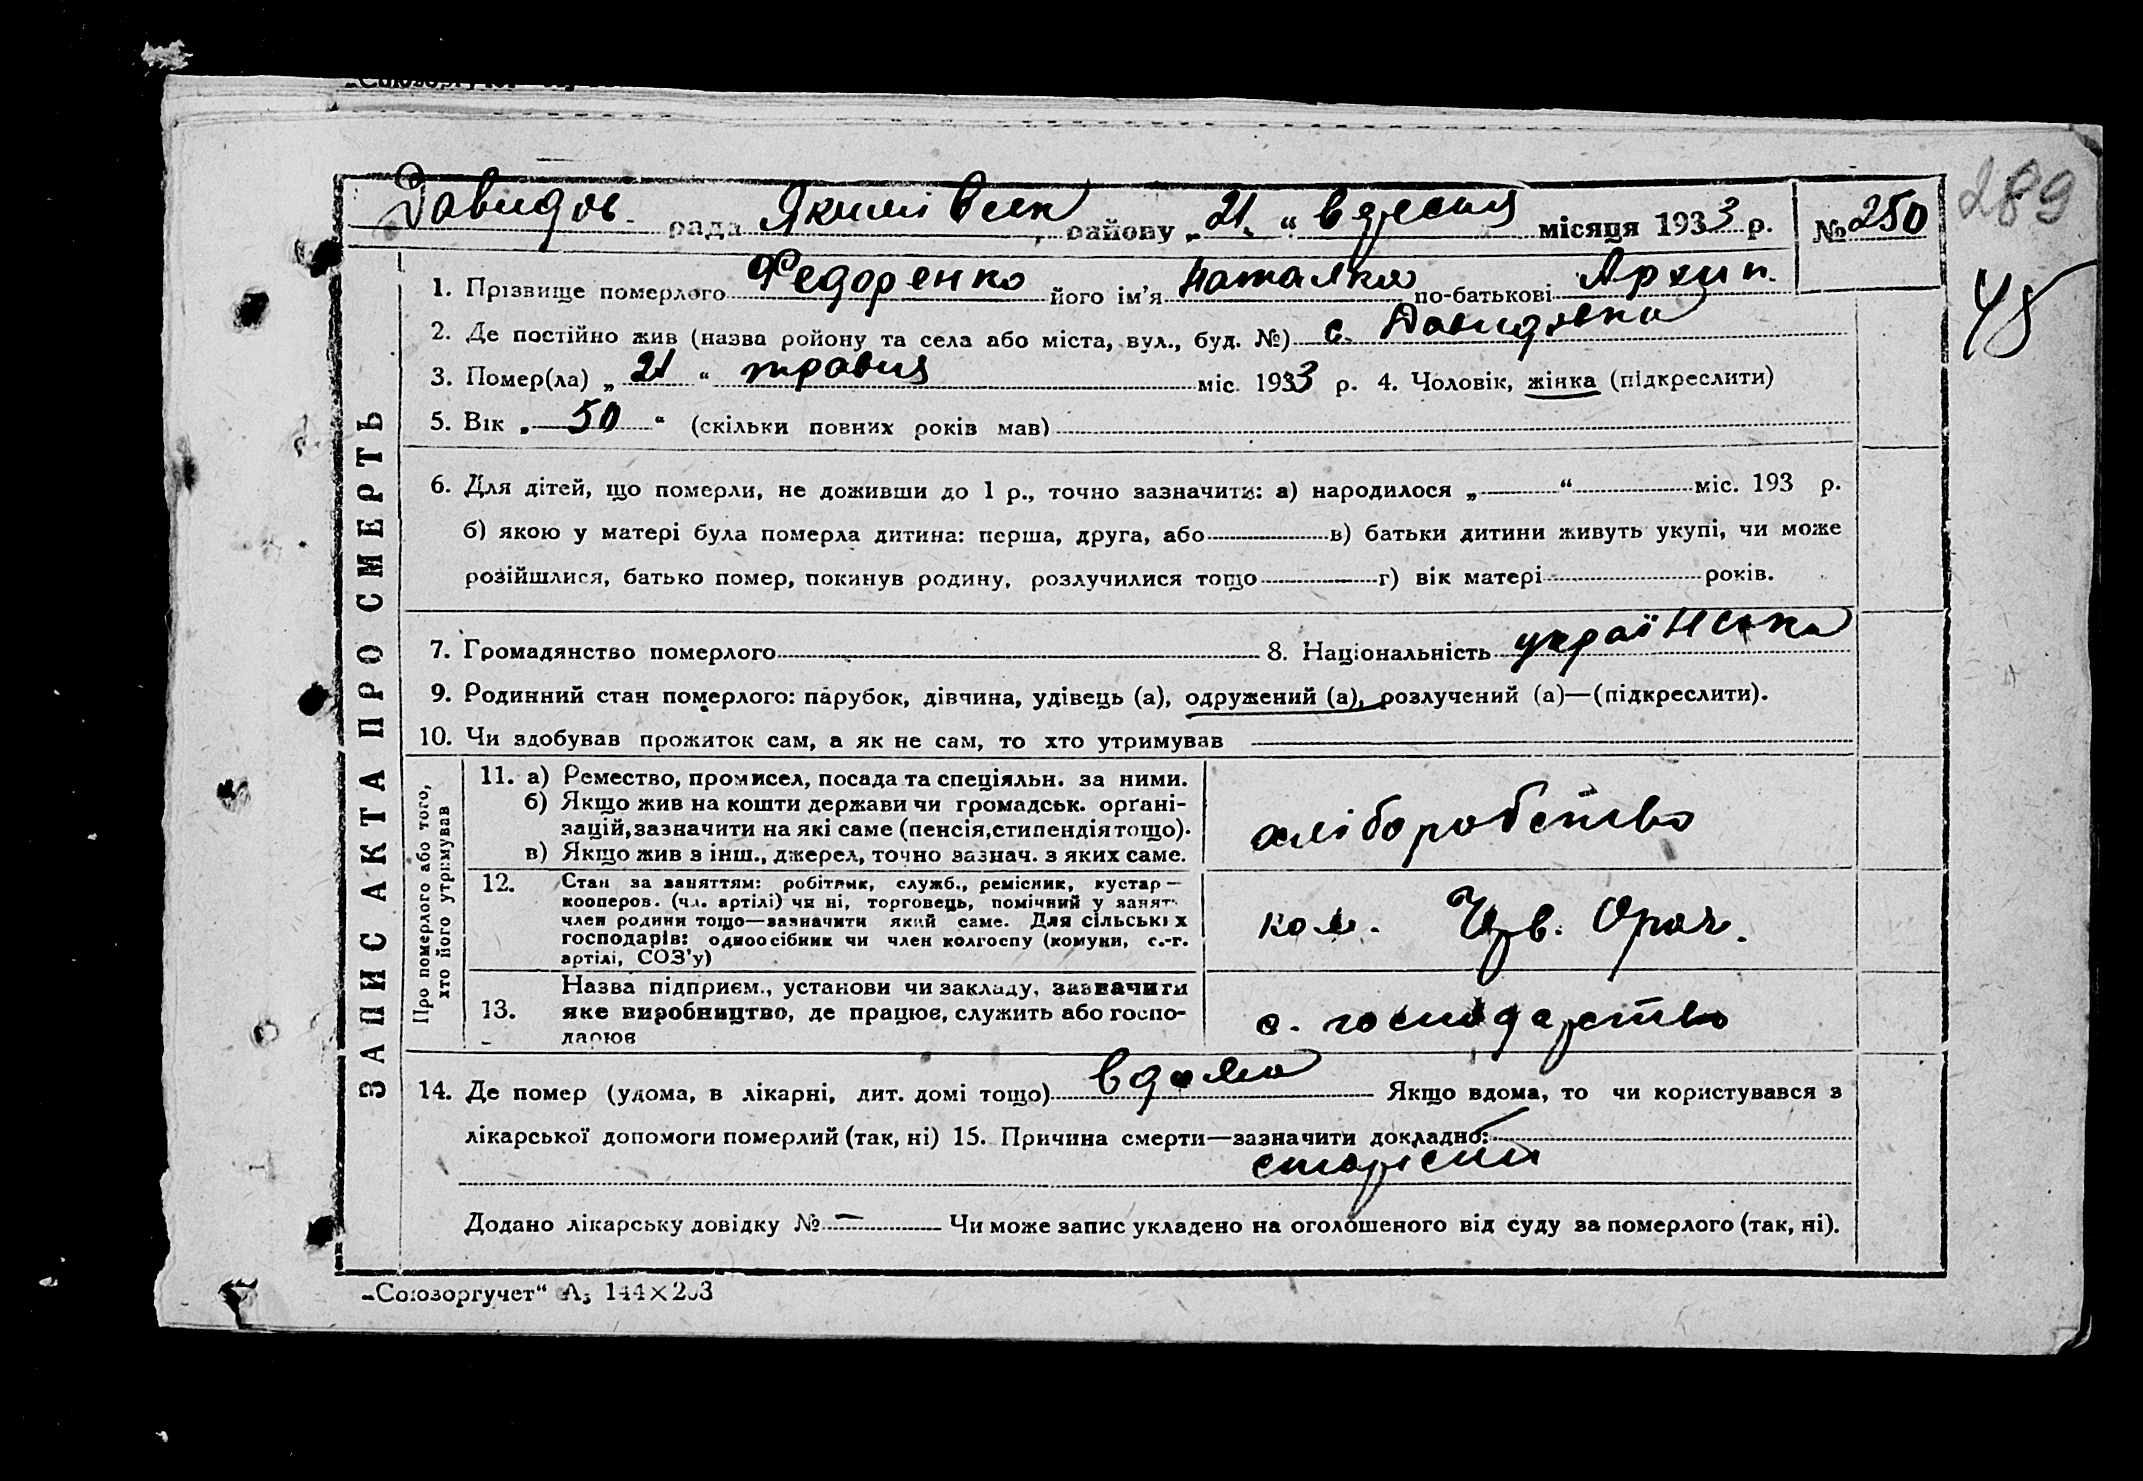 289
Давидов. рада Якимівськ району „21" вересня місяця 1933 р. № 250
48
ЗАПИС АКТА ПРО СМЕРТЬ
1. Прізвище померлого Федоренко його ім'я Наталка по-батькові Архип.
2. Де постійно жив (назва ройону та села або міста, вул., буд. №) с. Давидовка
3. Помер(ла) „21" травня міс. 1933 р. 4. Чоловік, жінка (підкреслити)
5. Вік „50" (скільки повних років мав)
6. Для дітей, що померли, не доживши до 1 р., точно зазначити: а) народилося „ " міс. 193 р.
б) якою у матері була померла дитина: перша, друга, або в) батьки дитини живуть укупі, чи може
розійшлися, батько помер, покинув родину, розлучилися тощо г) вік матері років.
7. Громадянство померлого 8. Національність українська
9. Родинний стан померлого: парубок, дівчина, удівець (а), одружений (а), розлучений (а)—(підкреслити).
10. Чи здобував прожиток сам, а як не сам, то хто утримував
Про померлого або того,
хто його утримував
11. а) Ремество, промисел, посада та спеціяльн. за ними.
б) Якщо жив на кошти держави чи громадськ. орґані-
зацій, зазначити на які саме (пенсія, стипендія тощо).
в) Якщо жив з інш., джерел, точно зазнач. з яких саме.
хліборобство
12. Стан за заняттям: робітник, служб., ремісник, кустар—
кооперов. (чл. артілі) чи ні, торговець, помічний у занят.
член родини тощо—зазначити який саме. Для сільських
господарів: одноосібник чи член колгоспу (комуни, с.-г.
артілі, СОЗ'у)
кол. Чрв. Орач.
13. Назва підприєм., установи чи закладу, зазначити
яке виробництво, де працює, служить або госпо-
дарює
с. господарство
14. Де помер (удома, в лікарні, дит. домі тощо) вдома Якщо вдома, то чи користувався з
лікарської допомоги померлий (так, ні) 15. Причина смерти—зазначити докладно:
старість
Додано лікарську довідку № — Чи може запис укладено на оголошеного від суду за померлого (так, ні).
„Союзоргучет" А5 144×203